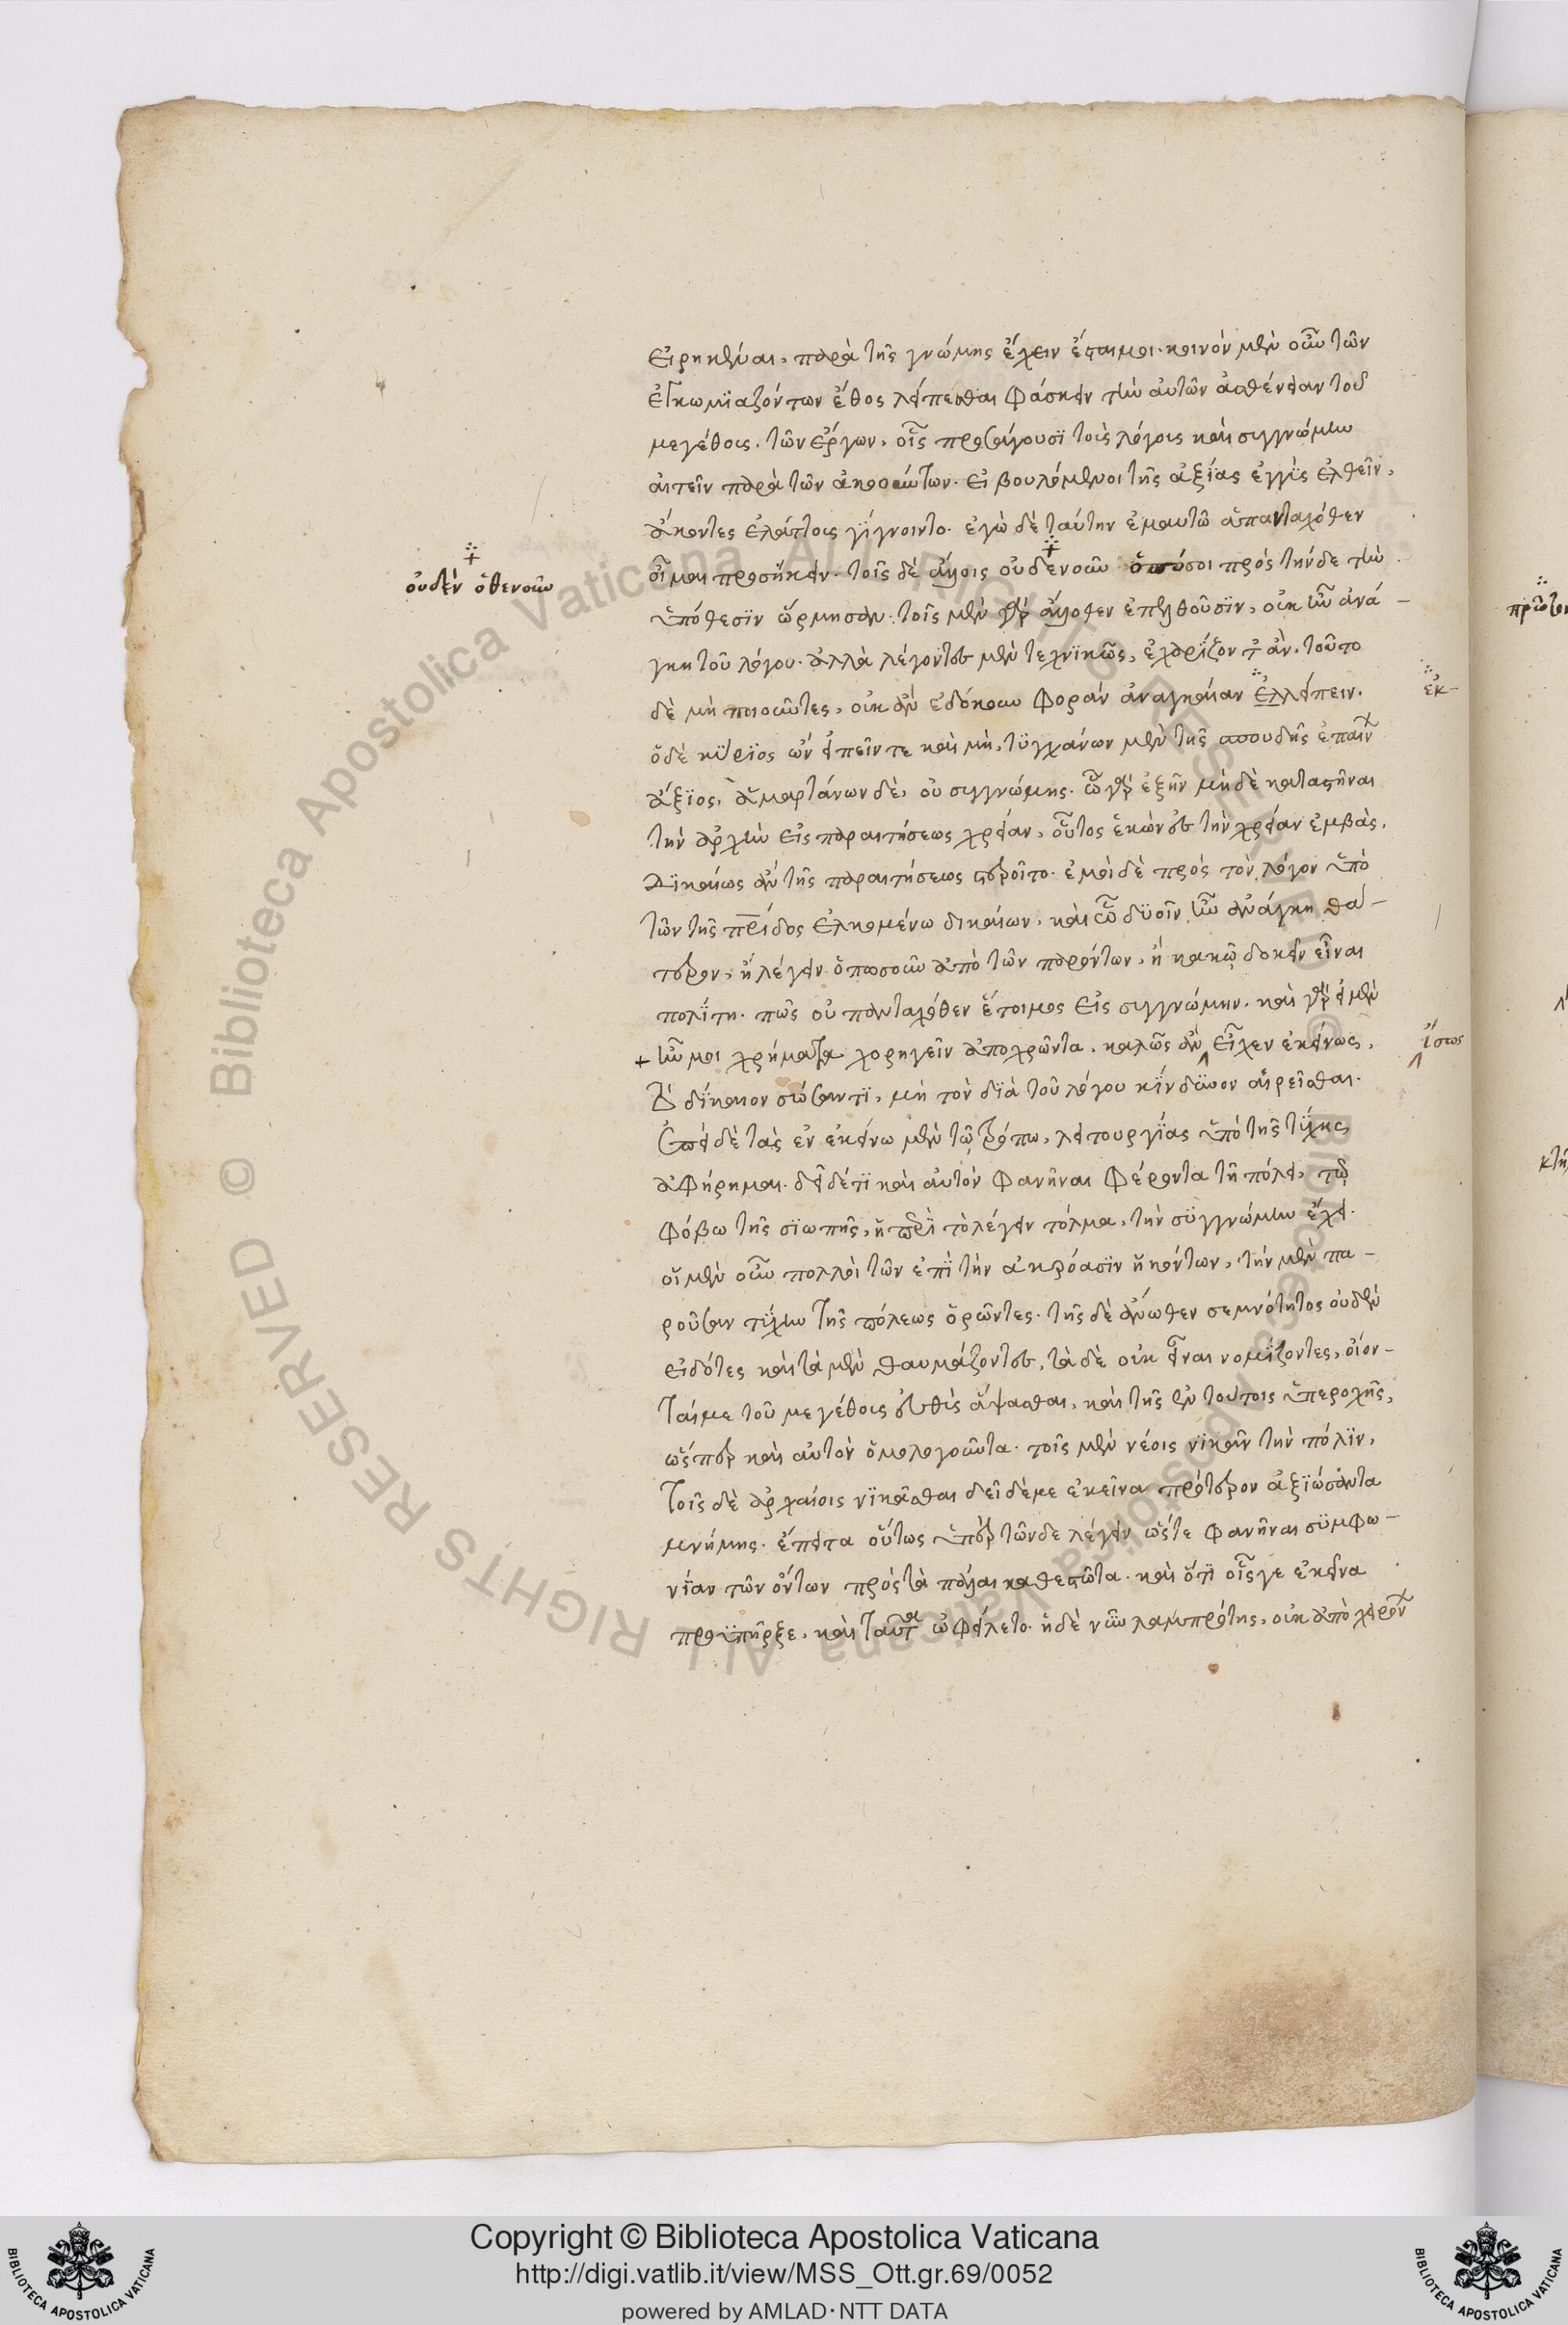 εἰρηκέναι, παρὰ τῆς γνώμης ἔχειν ἕτοιμοι. κοινὸν μὲν οὖν τῶν
ἐγκωμϊαζόντων ἔθος λείπεσθαι φάσκειν τὴν αὐτῶν ἀσθένειαν τοῦ
μεγέθους. τῶν ἔργων, οἷς προσάγουσϊ τοὺς λόγους καὶ συγγνώμην
αἰτεῖν παρὰ τῶν ἀκροωμένων. εἰ βουλόμενοι τῆς ἀξίας ἐγγὺς ἐλθεῖν,
ἄκοντες ἐλάττους γίγνοιντο. ἐγὼ δὲ ταύτην ἐμαυτῶ ἁπανταχόθεν
οἶμαι προσήκειν. τοῖς δὲ ἄλλοις οὐδενοοῦν ὁπόσοι πρὸς τήνδε τὴν
οὐδὲν ὁθενοοῦν
ὑπόθεσϊν ὥρμησαν. τοῖς μὲν γὰρ ἄλλοθεν ἐπελθοῦσϊν, οὐκ ἦν ἀνά-
γκη τοῦ λόγου. ἀλλὰ λέγοντες μὲν τεχνϊκῶς, ἐχαρίζοντ ἄν. τοῦτο
δὲ μὴ ποιοῦντες, οὐκ ἂν ἐδόκουν φορὰν ἀναγκαίαν ἐλλείπειν.
ἐκ-
ὁ δὲ κύρϊος ὢν εἰπεῖν τε καὶ μὴ, τϋγχάνων μὲν τῆς σπουδῆς ἐπαίν
ἄξϊος, ἁμαρτάνων δὲ, οὐ συγγνώμης. ὧ γὰρ ἐξῆν μὴ δὲ καταστῆναι
τὴν ἀρχὴν εἰς παραιτήσεως χρείαν, οὗτος ἑκὼν ἐς τὴν χρείαν ἐμβὰς,
δϊκαίως ἂν τῆς παραιτήσεως στεροῖτο. ἐμοὶ δὲ πρὸς τὸν λόγον ὑπὸ
τῶν τῆς πρίδος ἑλκομένω δικαίων, καὶ ὧ δϋοῖν ἦν ἀνάγκη θά-
τερον, ἢ λέγειν ὁπωσοῦν ἀπὸ τῶν παρόντων, ἢ κακῶ δοκεῖν εἶναι
πολίτη. πῶς οὐ πανταχόθεν ἕτοιμος εἰς συγγνώμην. καὶ γὰρ εἰ μὲν
+ ἦν μοι χρήματα χορηγεῖν ἀποχρῶντα, καλῶς ἂν εἶχεν ἐκείνως,
ἴσως
τὸ δίκαιον σώσαντϊ, μὴ τὸν δϊὰ τοῦ λόγου κίνδϋνον αἱρεῖσθαι.
ἐπεὶ δὲ τὰς ἐν ἐκείνω μὲν τῶ τρόπω, λειτουργίας ὑπὸ τῆς τύχης
ἀφήρημαι. δεῖ δέ τϊ καὶ αὐτὸν φανῆναι φέροντα τῆ πόλει, τῶ
φόβω τῆς σϊωπῆς, ἡ περὶ τὸ λέγειν τόλμα, τὴν σϋγγνώμην ἔχει.
οἱ μὲν οὖν πολλοὶ τῶν ἐπὶ τὴν ἀκρόασϊν ἡκόντων, τὴν μὲν πα-
ροῦσαν τύχην τῆς πόλεως ὁρῶντες. τῆς δὲ ἄνωθεν σεμνότητος οὐδὲν
εἰδότες καὶ τὰ μὲν θαυμάζοντες, τὰ δὲ οὐκ εἶναι νομίζοντες, οἴον-
ταί με τοῦ μεγέθους εὐθὺς ἅψασθαι, καὶ τῆς ἐν τούτοις ὑπεροχῆς,
ὥσπερ καὶ αὐτὸν ὁμολογοῦντα. τοῖς μὲν νέοις νϊκᾶν τὴν πόλϊν,
τοῖς δὲ ἀρχαίοις νϊκᾶσθαι δεῖ δέ με ἐκεῖνα πρότερον ἀξϊώσαντα
μνήμης. ἔπειτα οὕτως ὑπὲρ τῶνδε λέγειν ὥστε φανῆναι σϋμφω-
νίαν τῶν ὄντων πρὸς τὰ πάλαι καθεστῶτα. καὶ ὅτϊ οἷς γε ἐκεῖνα
προϋπῆρξε, καὶ ταῦτα ὠφείλετο. ἡ δὲ νῦν λαμπρότης, οὐκ ἀπὸ χειρόν
Copyright © Biblioteca Apostolica Vaticana
http://digi.vatlib.it/view/MSS_Ott.gr.69/0052
powered by AMLAD·NTT DATA